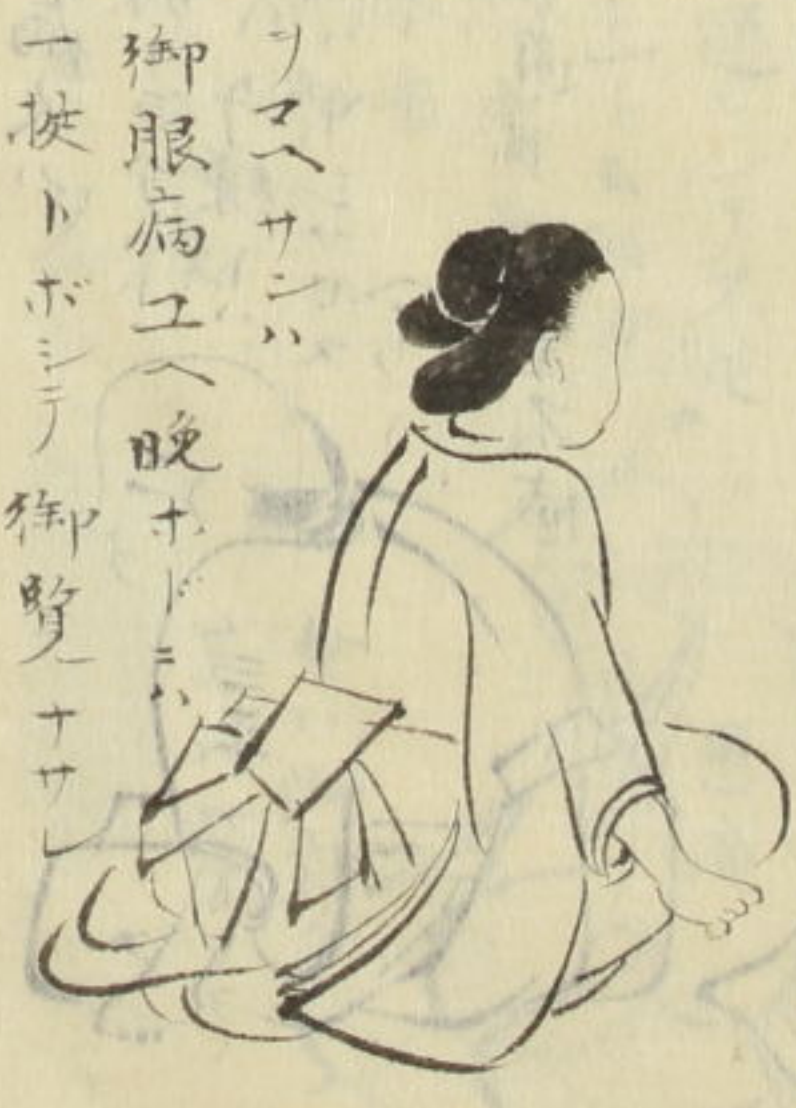 ヲマヘサンハ
御眼病ユヘ晩ホドニハ
一挺トボシテ御覧ナサレ